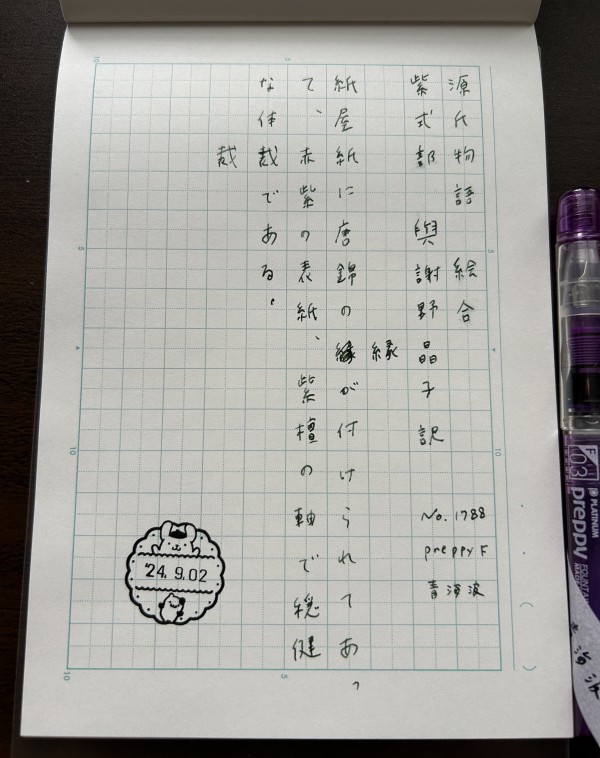 源氏物語 絵合
紫式部 與謝野晶子訳
No. 1788
preppy F
青海波
縁
紙屋紙に唐錦の縁が付けられてあっ
て、赤紫の表紙、紫檀の軸で穏健
な体裁である。
裁
'24.9.02
10
5
10
5
10
5
10
F
03
PLATINUM
preppy
FOUNTAIN